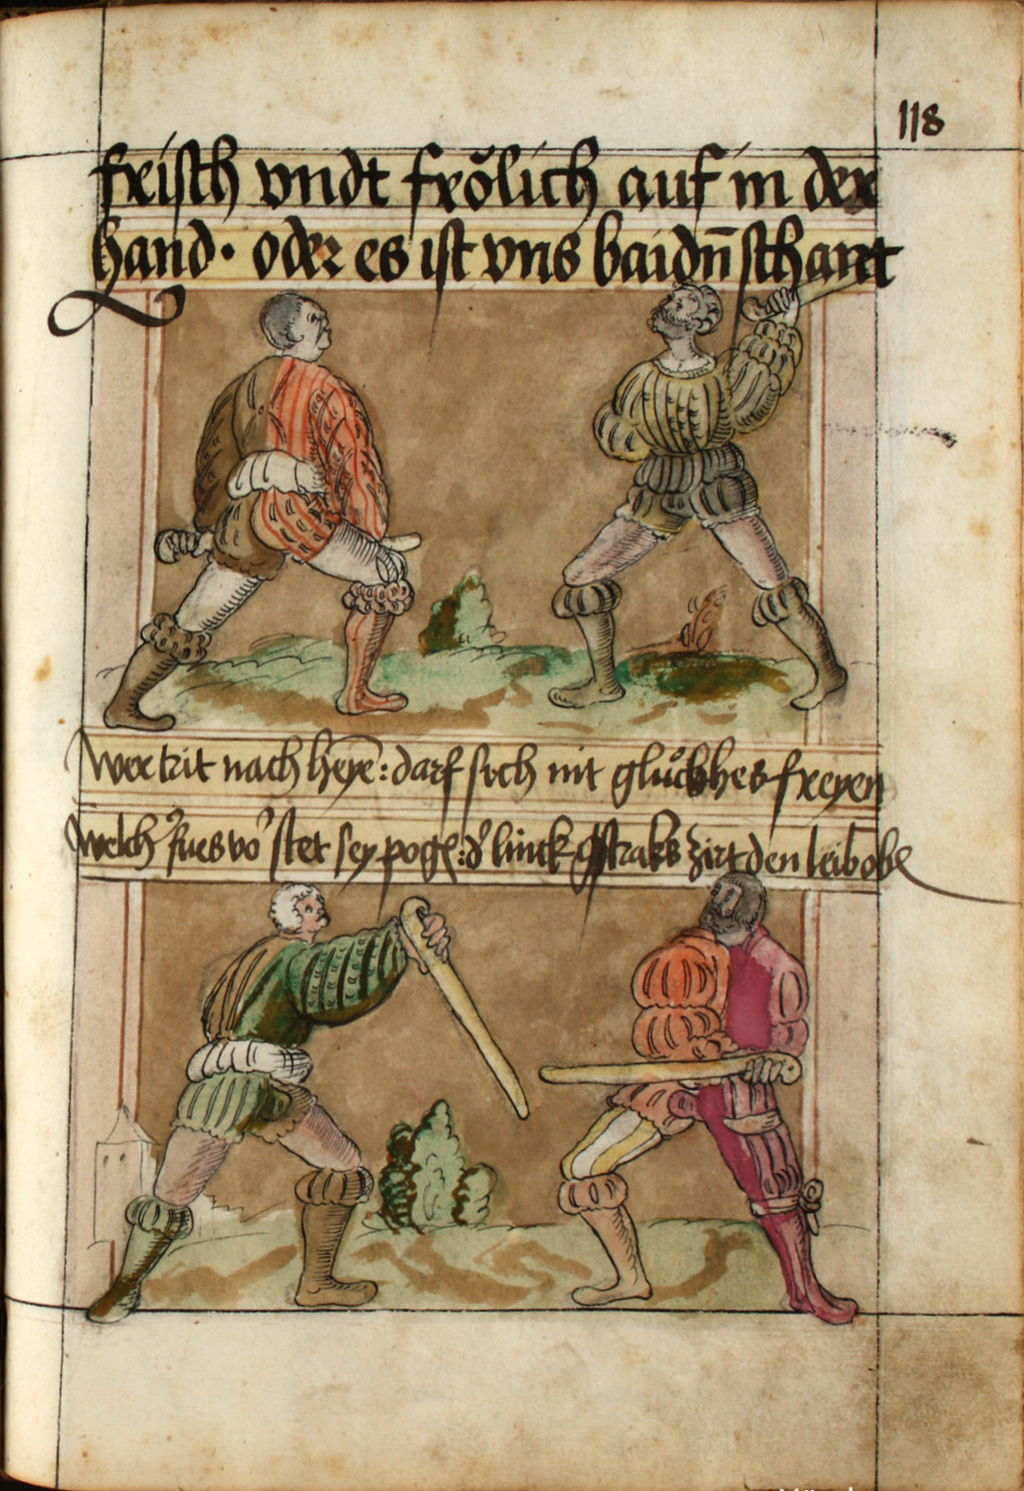 118
frisch vndt frölich auf in der
hand · oder es ist vns baidn̄ schant
wer trit nach heÿe: darf sich nit glückhes freyen
welch fues vo' stet sey pogē: d' linck gstraks zirt den leib obē